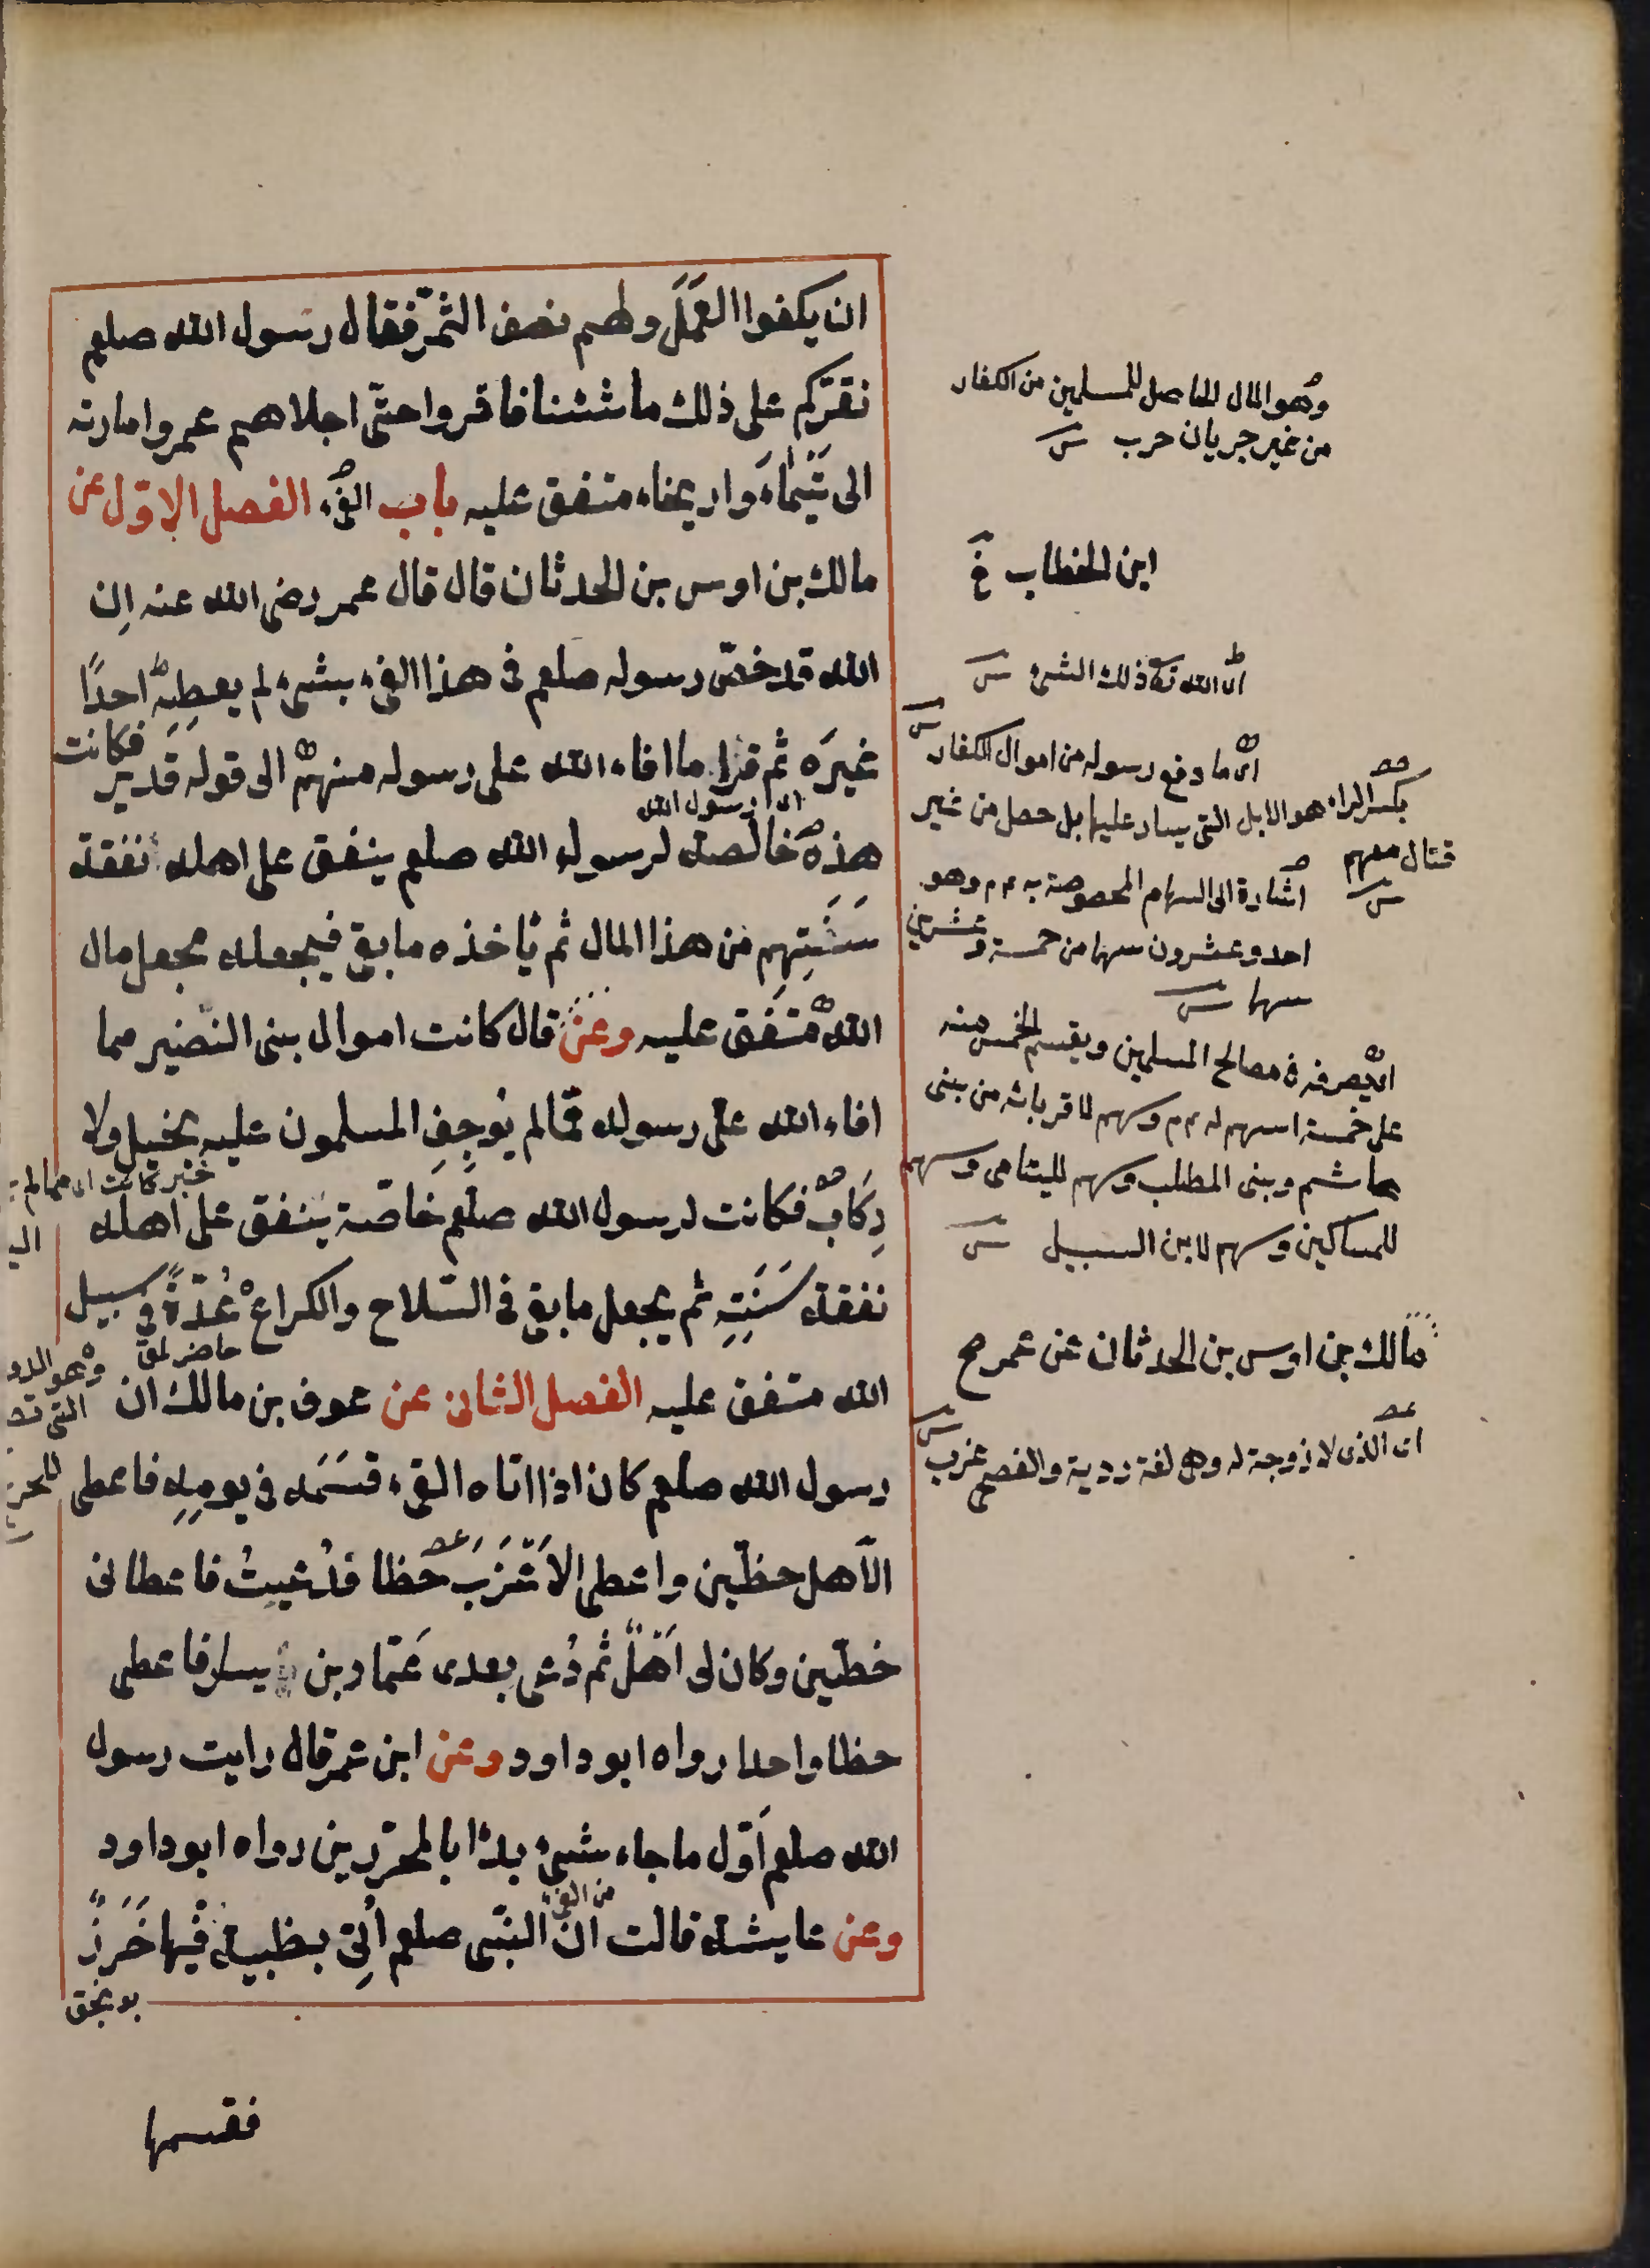 ان يكفوا العَمَلَ ولهم نصف الثمر فقال رسول الله صلعم
نقرّكم على ذلك ما شئنا فاقروا حتّى اجلاهم عمر وامارته
الى تَيْمَاءَ واريحاء متفق عليه باب الفئ الفصل الاوّل عن
مالك بن اوس بن الحدثان قال قال عمر رضى الله عنه اِن
الله قد خصّ رسوله صلعم فى هذا الفئ بشئ لم يعطِهِ احدًا
غيرَه ثم قرا ما افاء الله على رسوله منهم الى قوله قَدَير فكانت
اى رسول الله
هذه خالصة لرسول الله صلعم ينفق على اهله نفقة
سَنَتِهِم من هذا المال ثم يأخذه ما بقى فيجعله مجعل مال
الله متفق عليه وعن قال كانت اموال بنى النضير مما
افاء الله على رسوله ممّا لم يُوجِفِ المسلمون عليه بخيل ولا
خبر كانت اى مما لم
رِكَاب فكانت لرسول الله صلعم خاصّة ينفق على اهله
نفقة سَنَتِهِ ثم يجعل ما بقى فى السّلاح والكراع عُدّةً فى سبيل
الله متفق عليه الفصل الثانى عن عوف بن مالك ان
رسول الله صلعم كان اذا اتاه الفئ قَسَمَه فى يومِهِ فاعطى
الآهل حظّين واعطى الاَعْزَبَ حظا فدُعيتُ فاعطانى
حظّين وكان لى اَهْلٌ ثم دُعى بعدى عَمّار بن يسار فاعطى
حظا واحدا رواه ابو داود وعن ابن عمر قال رايت رسول
الله صلعم اَوّل ما جاء شئ بدا بالمحررين رواه ابو داود
من الفئ
وعن عايشة قالت انّ النبّى صلعم اُتِى بظبية فيها خَرَزٌ
بونجق
فقسمها
وهو المال الحاصل للمسلمين من الكفار
من غير جريان حرب س
ابن الخطاب غ
اى الله تع ذلك الشئ س
اى ما دفع رسوله من اموال الكفار س
بكسر الراء هو الابل التى يسار عليها بل حصل من غير
قتال معهم س
اشارة الى السهام المخصوصة به عم وهو
احد وعشرون سهما من خمسة وعشرين
سهما س
اى يصرفه فى مصالح المسلمين ويقسم الخمس منه
على خمسة اسهم له عم وسهم لاقربائه من بنى
هاشم وبنى المطلب وسهم لليتامى وسهم
للمساكين وسهم لابن السبيل س
مالك بن اوس بن الحدثان عن عمر صح
اى الذى لا زوجة له وهى لغة ردية والفصيح عزب س